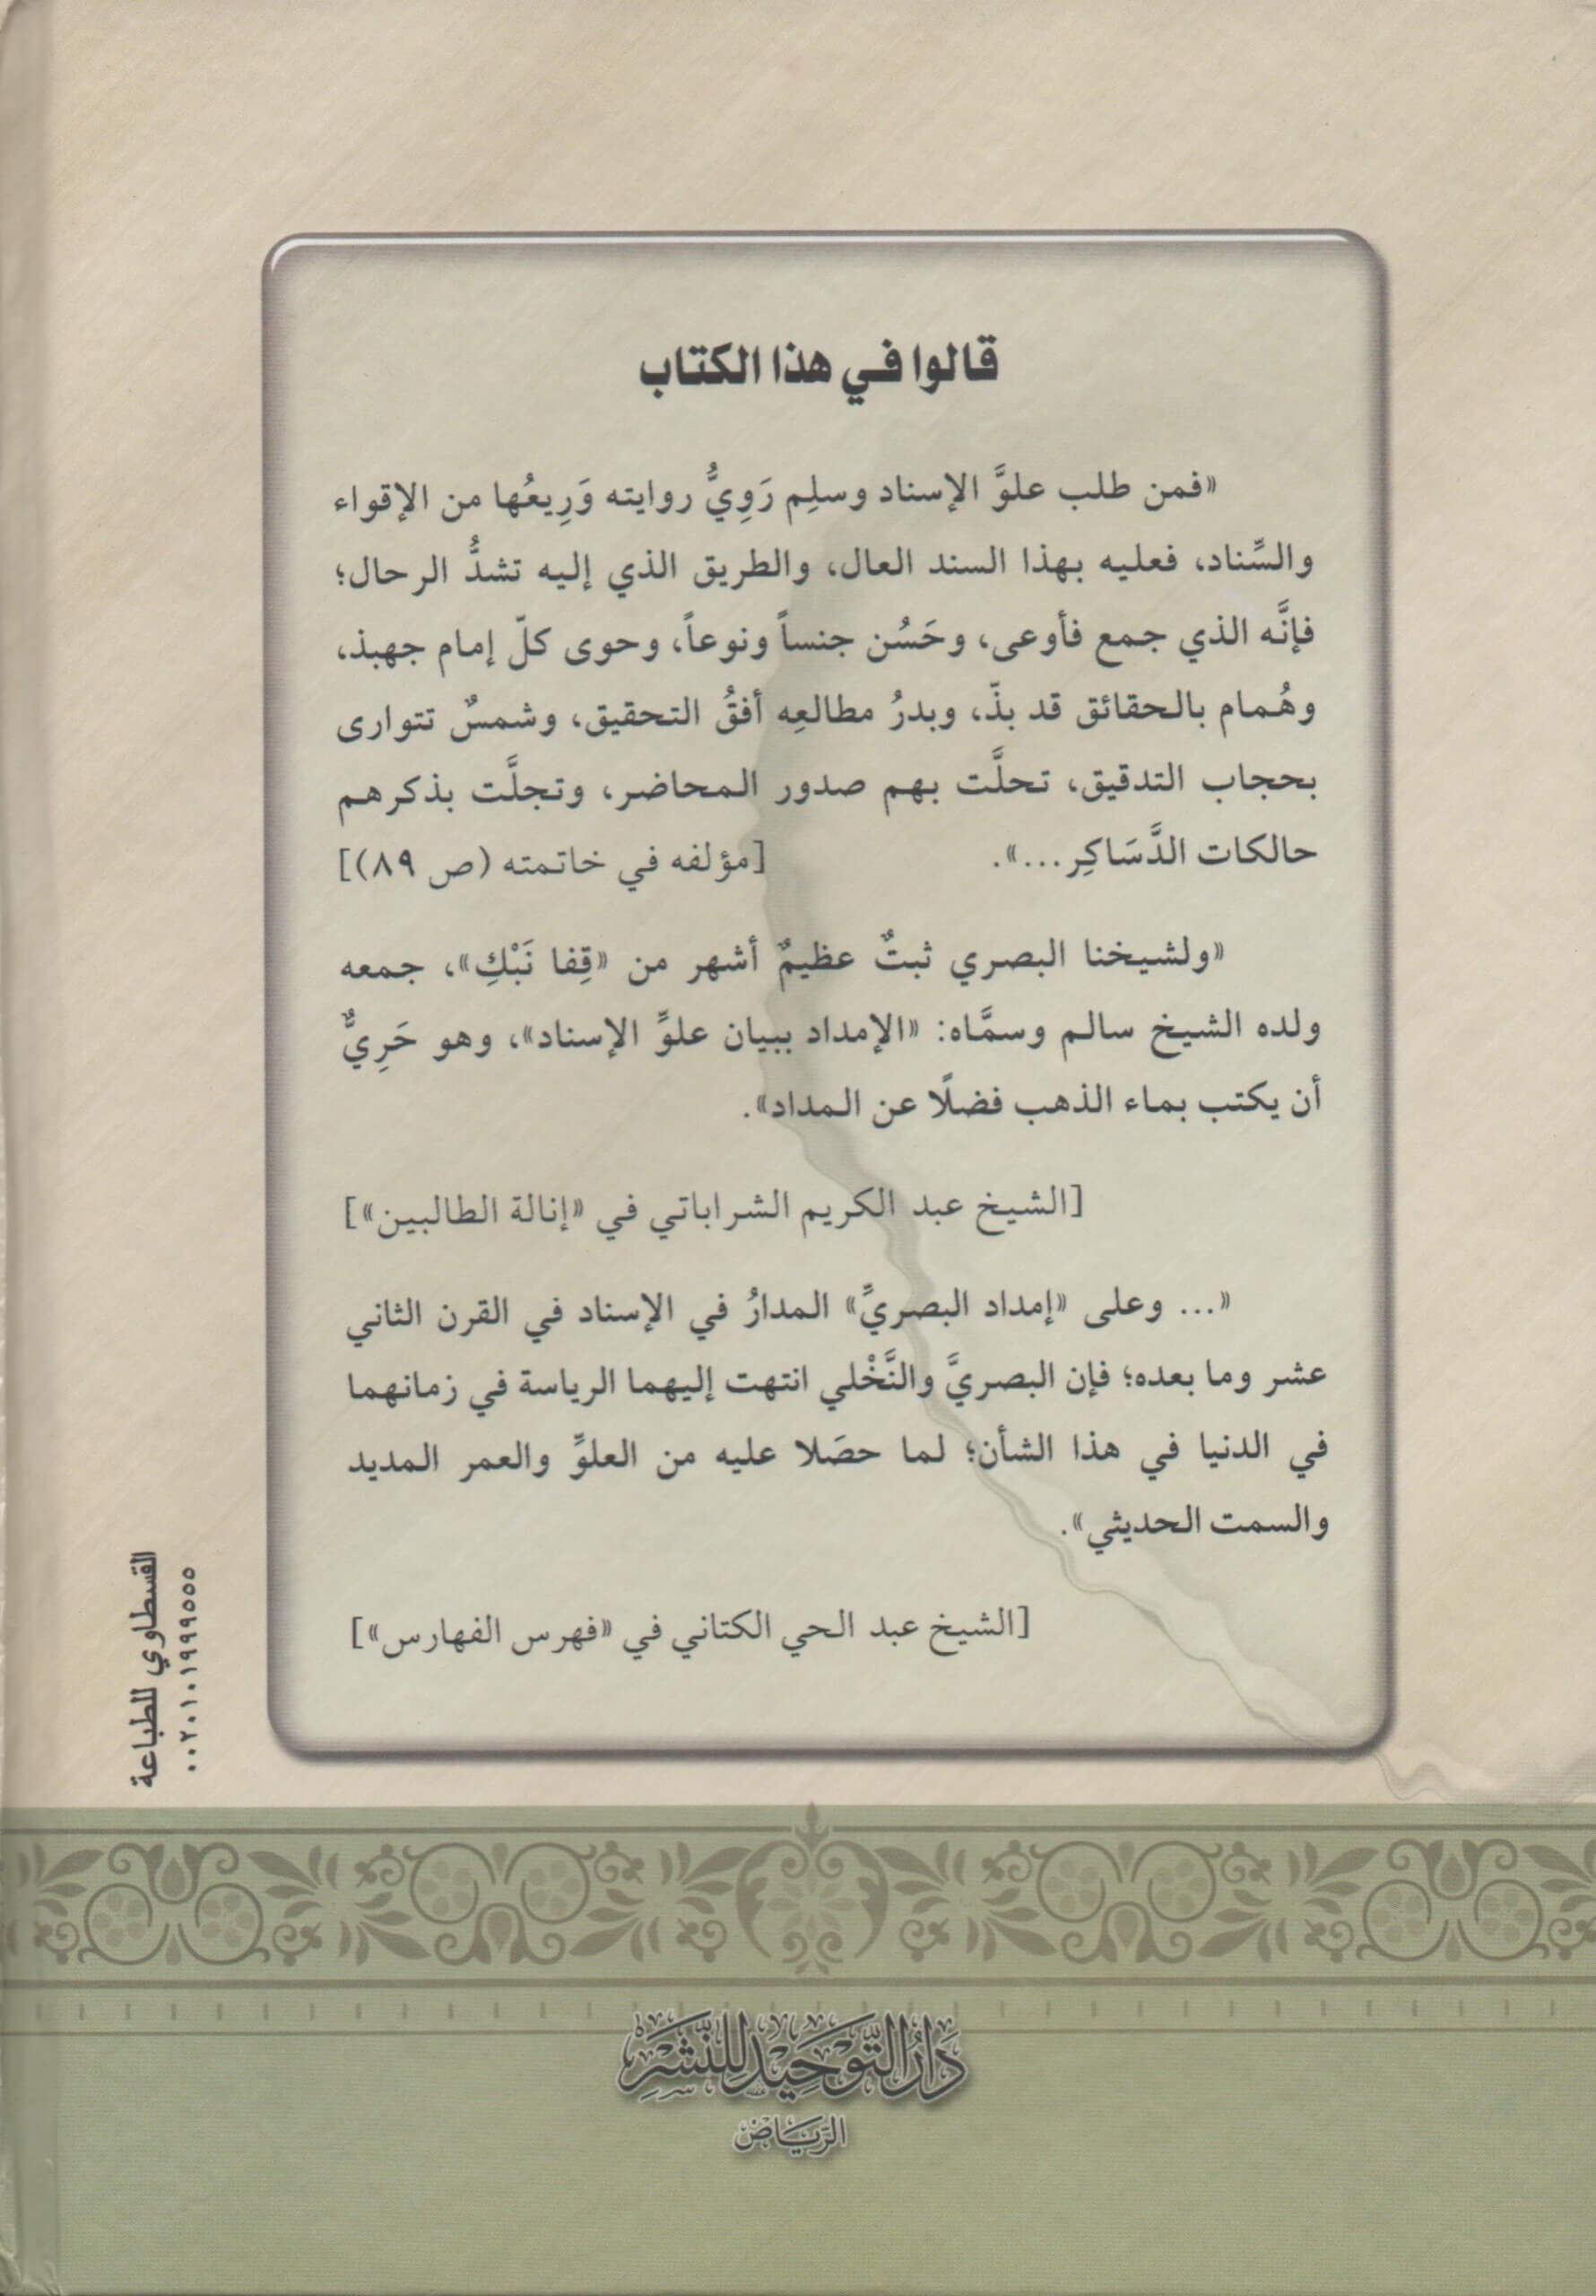 قالوا في هذا الكتاب
«فمن طلب علوَّ الإسناد وسلِم رَوِيُّ روايته وَرِيعُها من الإقواء
والسِّناد، فعليه بهذا السند العال، والطريق الذي إليه تشدُّ الرحال؛
فإنَّه الذي جمع فأوعى، وحَسُن جنساً ونوعاً، وحوى كلّ إمام جهبذ،
وهُمام بالحقائق قد بذّ، وبدرُ مطالعِه أفقُ التحقيق، وشمسٌ تتوارى
بحجاب التدقيق، تحلَّت بهم صدور المحاضر، وتجلَّت بذكرهم
حالكات الدَّسَاكِر...». [مؤلفه في خاتمته (ص ٨٩)]
«ولشيخنا البصري ثبتٌ عظيمٌ أشهر من «قِفا نَبْكِ»، جمعه
ولده الشيخ سالم وسمَّاه: «الإمداد ببيان علوِّ الإسناد»، وهو حَرِيٌّ
أن يكتب بماء الذهب فضلًا عن المداد».
[الشيخ عبد الكريم الشراباتي في «إنالة الطالبين»]
«... وعلى «إمداد البصريِّ» المدارُ في الإسناد في القرن الثاني
عشر وما بعده؛ فإن البصريَّ والنَّخْلي انتهت إليهما الرياسة في زمانهما
في الدنيا في هذا الشأن؛ لما حصَلا عليه من العلوِّ والعمر المديد
والسمت الحديثي».
[الشيخ عبد الحي الكتاني في «فهرس الفهارس»]
القسطاوي للطباعة
٠٠٢٠١٠١٩٩٩٥٥٥
دَارُ التَّوْحِيدِ لِلنَّشْرِ
الرِّيَاض